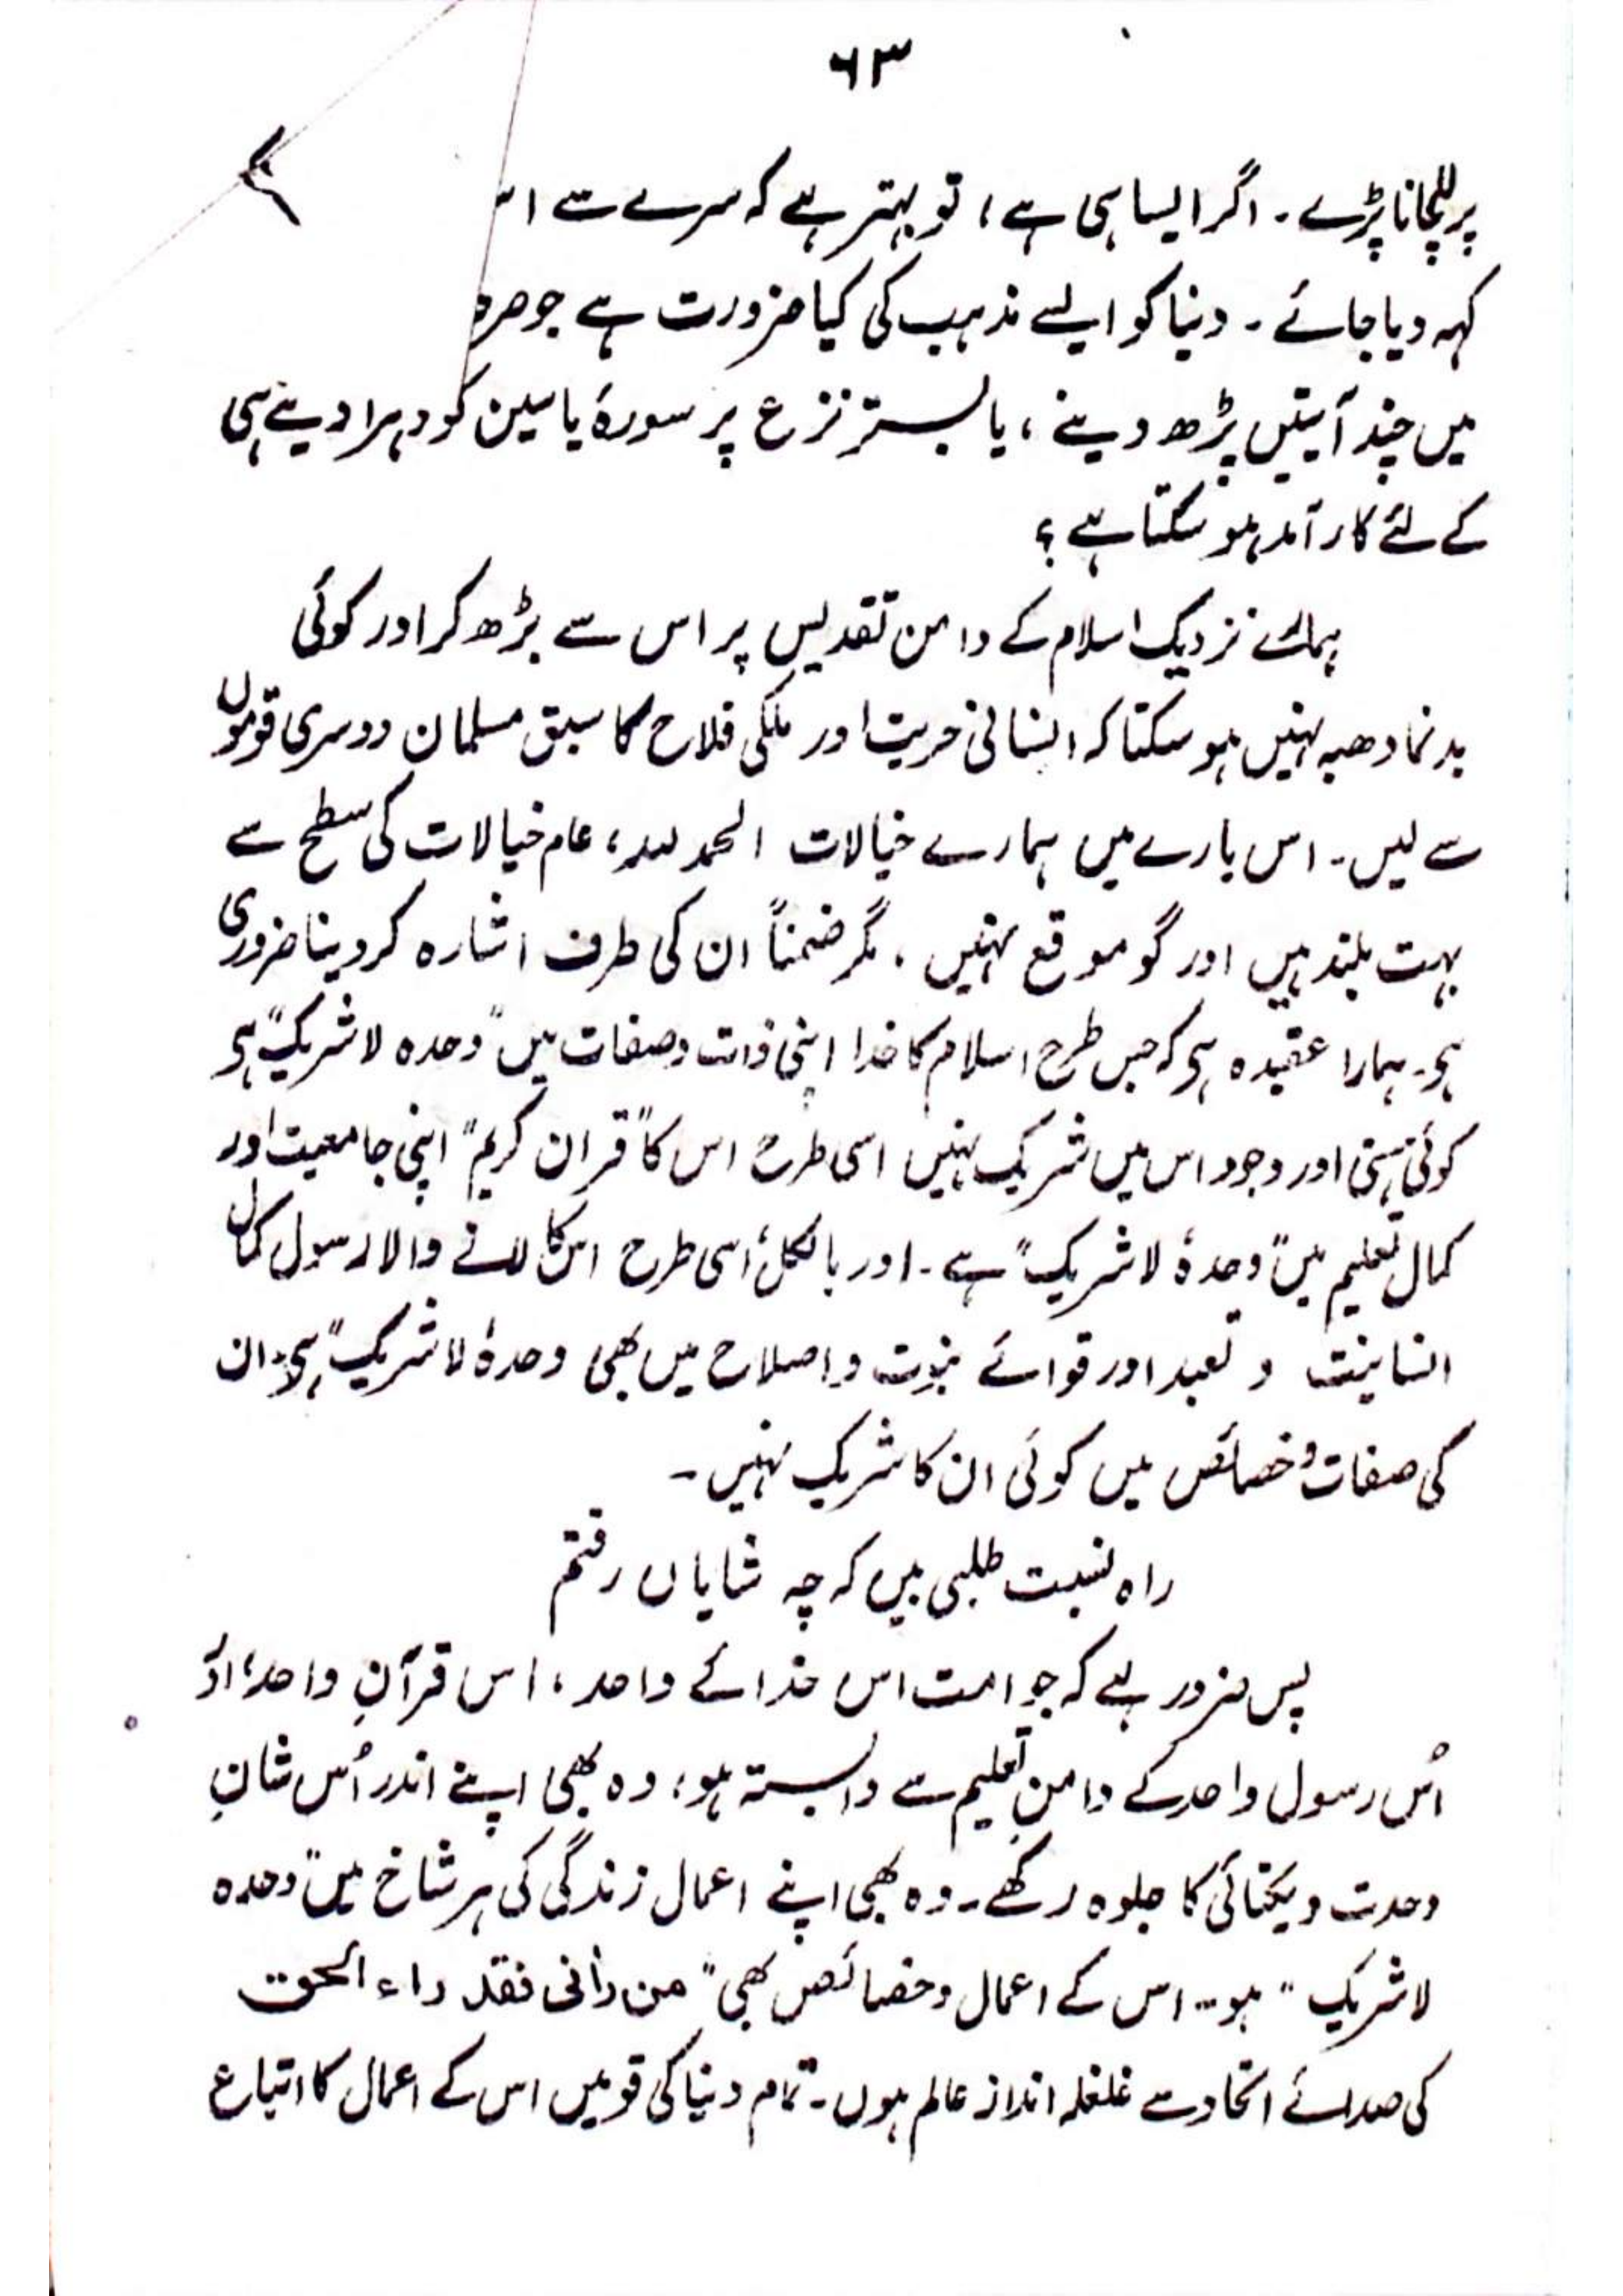 ۶۳
پر للچانا پڑے۔ اگر ایسا ہی ہے، تو بہتر ہے کہ سرے سے
کہہ دیا جائے۔ دنیا کو ایسے مذہب کی کیا ضرورت ہے جو صرف
میں چند آیتیں پڑھ دینے، یا بستر نزع پر سورۂ یاسین کو دہرا دینے ہی
کے لئے کار آمد ہو سکتا ہے؟
ہمارے نزدیک اسلام کے دامن تقدیس پر اس سے بڑھ کر اور کوئی
بدنما دھبہ نہیں ہو سکتا کہ انسانی حریت اور ملکی فلاح کا سبق مسلمان دوسری قوموں
سے لیں۔ اس بارے میں ہمارے خیالات الحمد للہ، عام خیالات کی سطح سے
بہت بلند ہیں اور گو موقع نہیں، مگر ضمناً ان کی طرف اشارہ کر دینا ضروری
ہے۔ ہمارا عقیدہ ہے کہ جس طرح اسلام کا خدا اپنی ذات و صفات میں "وحدہ لا شریک" ہے
کوئی ہستی اور وجود اس میں شریک نہیں اسی طرح اس کا "قران کریم" اپنی جامعیت اور
کمال تعلیم میں "وحدہٗ لا شریک" ہے۔ اور بالکل اسی طرح اس کا لانے والا رسول کمال
انسانیت و تعبد اور قوائے نبوت و اصلاح میں بھی وحدہٗ لا شریک" ہے، ان
کی صفات و خصائص میں کوئی ان کا شریک نہیں۔
راہ نسبت طلبی بیں کہ چہ شایاں رفتم
پس ضرور ہے کہ جو امت اس خدائے واحد، اس قرآنِ واحد، اور
اُس رسول واحد کے دامنِ تعلیم سے وابستہ ہو، وہ بھی اپنے اندر اُس شانِ
وحدت و یکتائی کا جلوہ رکھے۔ وہ بھی اپنے اعمال زندگی کی ہر شاخ میں "وحدہ
لا شریک" ہو۔ اس کے اعمال و خصائص بھی "من رأنی فقد راء الحق
کی صدائے اتحاد سے غلغلہ انداز عالم ہوں۔ تمام دنیا کی قومیں اس کے اعمال کا اتباع